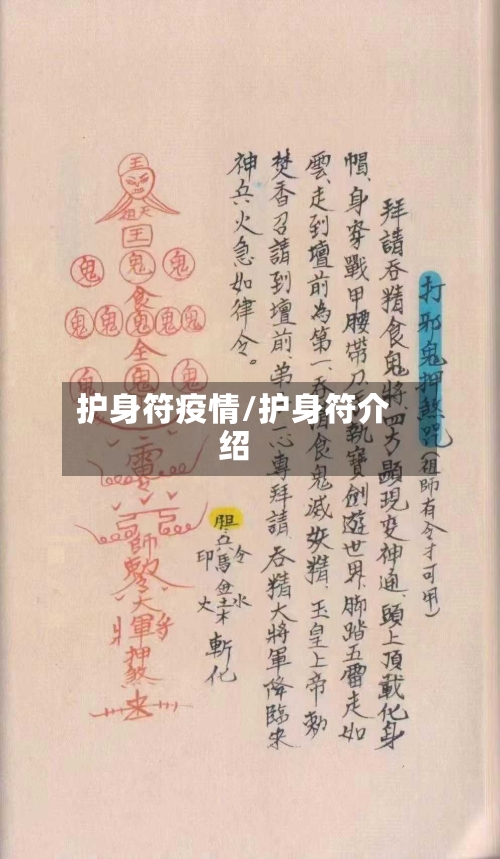 护身符疫情/护身符介
绍
打邪鬼押煞咒（祖師有令才可用）
拜請吞精食鬼將、四方顯現变神通、頭上頂載化身
帽、身穿戰甲腰帶刀、執寶劍遊世界、脚踏五雷走如
雲、走到壇前為第一、吞精食鬼滅妖精、玉皇上帝勅
焚香召請到壇前、弟 一心專拜請、吞精大將軍降臨來
神兵火急如律令。
胆
兵
馬
印 令
火 水
金
土
木
斬化
王
祖天
王
鬼 鬼 鬼
食
鬼 鬼 鬼 鬼 鬼
全
鬼 鬼 鬼
雷
師
大
將 軍
押
煞
来